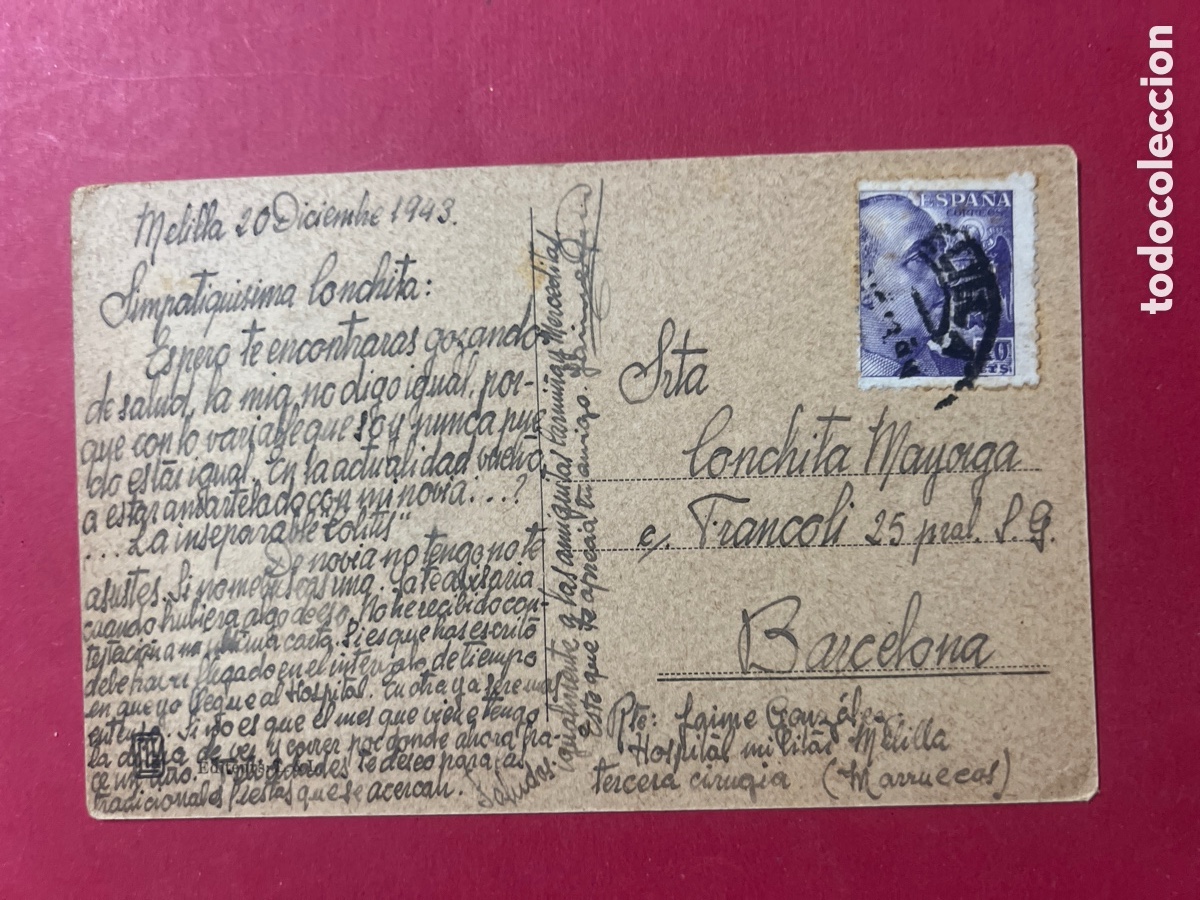 Melilla 20 Diciembre 1943.
Simpatiquisima Conchita:
Espero te encontraras gozando
de salud, la mia, no digo igual, por-
que con lo variable que soy nunca pue
do estar igual. En la actualidad vuelvo
a estar amartelado con mi novia...?
... La inseparable Colitis"
De novia no tengo, no te
asustes. Si no me sima. Ya te avisaria
cuando hubiera algo de eso. No he recibido con-
testación a mi ultima carta. Si es que has escrito
debe haber llegado en el intervalo de tiempo
en que yo llegue al Hospital. En otra ya sere mas
extenso. Si no es que el mes que viene tengo
la dicha de ver y correr por donde ahora ha-
ce un año. te deseo para las
tradicionales fiestas que se acercan.
Saludos.
igualmente a las amiguitas Carmina y Merceditas
Este que te aprecia tu amigo. Jaime
Editorial
ESPAÑA
CORREOS
40
CTS
Srta
Conchita Mayorga
c/. Francoli 25 pral. S. G.
Barcelona
Rte: Jaime González
Hospital militar Melilla
tercera cirugia (Marruecos)
todocoleccion